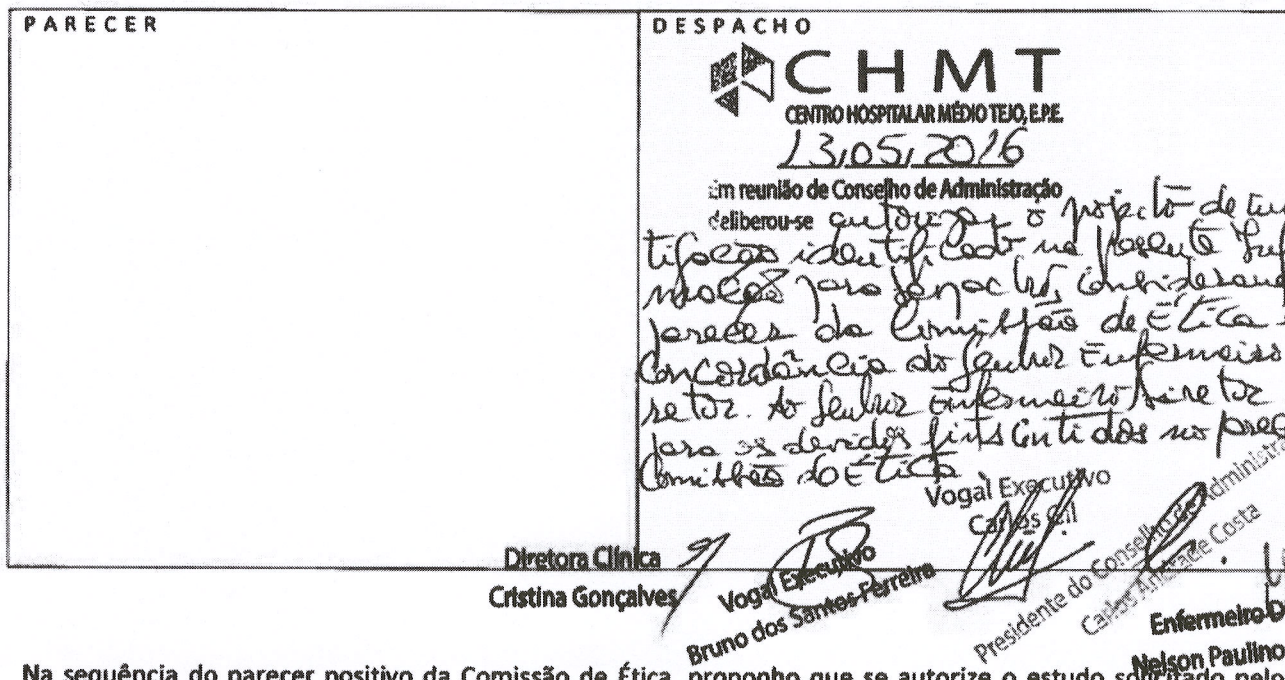 PARECER
DESPACHO
CHMT
CENTRO HOSPITALAR MÉDIO TEJO, E.P.E.
13,05,2016
Em reunião de Conselho de Administração
deliberou-se autorizar o projecto de
identificado na presente
para
parecer da Comissão de Ética
Concordância do Senhor Enfermeiro
retor. Ao Senhor Enfermeiro Diretor
para os devidos fins contidos no
Comissão de Ética
Vogal Executivo
Carlos Gil
Diretora Clínica
Cristina Gonçalves
Vogal Executivo
Bruno dos Santos Ferreira
Presidente do Conselho de Administra
Carlos Andrade Costa
Enfermeiro D
Nelson Paulino
Na sequência do parecer positivo da Comissão de Ética, proponho que se autorize o estudo solicitado pelo